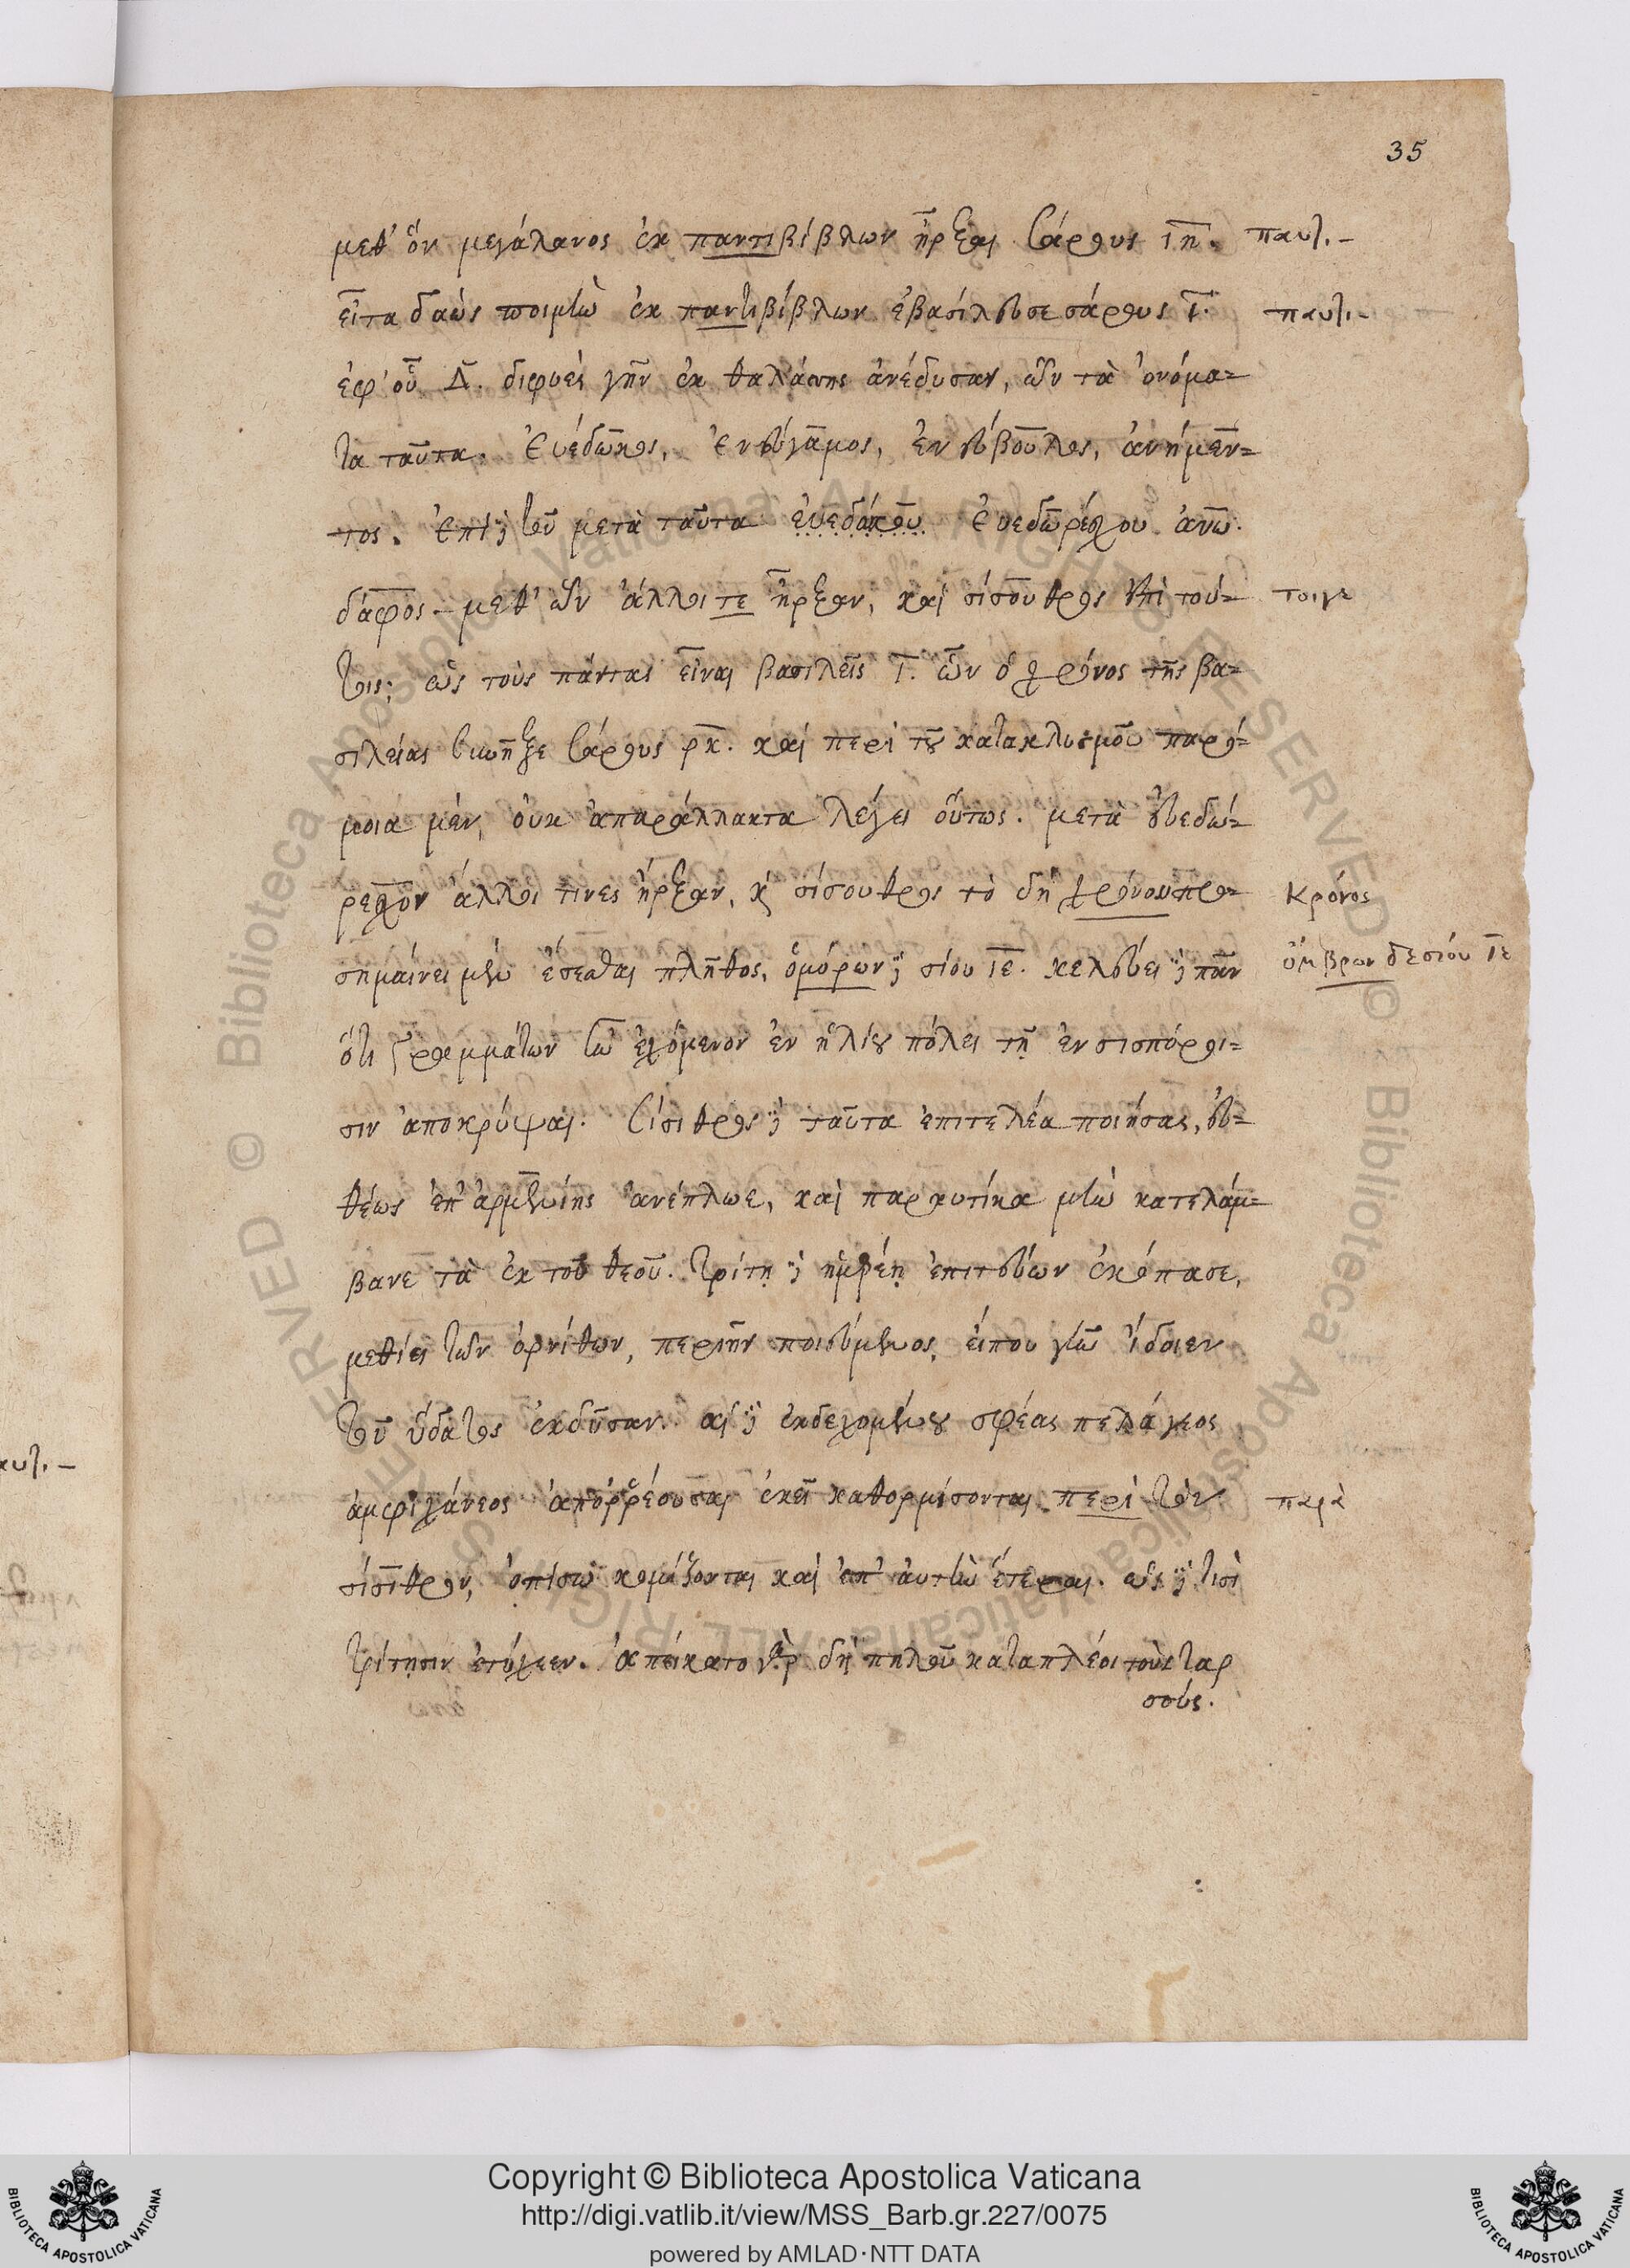 35
μεθ' ὃν μεγάλανος ἐκ παντιβίβλων ἦρξαι σάρους ιη. παυτι–
εἶτα δαὼς ποιμὴν ἐκ παντιβίβλων ἐβασίλευσε σάρους ι. παυτι–
ἐφ' οὗ Δ. διφυεῖς γῆν ἐκ θαλάσσης ἀνέδυσαν, ὧν τὰ ὀνόμα=
τα ταῦτα. ἐυέδωκος, ἐνεύγαμος, ἐνεύβουλος, ἀνήμεν=
τος. ἐπὶ δὲ τοῦ μετὰ ταῦτα ἐυεδάκου ἐυεδωρέχου ἀνω.
δαφος – μεθ' ὧν ἄλλοι τε ἦρξαν, καὶ σίσουθρος ἐπὶ τού= τοιγε
τοις; ὡς τοὺς πάντας εἶναι βασιλεῖς ι. ὧν ὁ χρόνος τῆς βα=
σιλείας συνῆξε σάρους ρκ. καὶ περὶ τοῦ κατακλυσμοῦ παρό=
μοια μὲν, οὐκ ἀπαράλλακτα λέγει οὕτως. μετὰ εὐεδώ=
ρεχον ἄλλοι τινες ἦρξαν, κ σίσουθρος τὸ δὴ χρόνου προ= κρόνος
σημαίνει μὲν ἔσεσθαι πλῆθος, ὁμόρων δὲ σίου ιε. κελεύει δὲ πᾶν ὄμβρων δεσίου ιε
ὅτι γραμμάτων ἦν ἐχόμενον ἐν ἡλίου πόλει τῇ ἐν σισπάροι=
σιν ἀποκρύψαι. σίσιθρος δὲ ταῦτα ἐπιτελέα ποιήσας, εὐ=
θέως ἐπ' ἀρμενίης ἀνέπλωε, καὶ παραυτίκα μὲν κατελάμ=
βανε τὰ ἐκ τοῦ θεοῦ. τρίτῃ δὲ ἡμέρῃ ἐπιτεύων ἐκόπασε,
μεθίει τῶν ὀρνίθων, περιὴν ποιεύμενος, εἴπου γῆν ἴδοιεν
τοῦ ὕδατος ἐκδῦσαν. αἱ δὲ ἐκδεχομένου σφέας πελάγεος
ἀμφιχάνεος ἀπορρέουσαι ἐκεῖ καθορμίσονται περὶ τὸν παρὰ
σίσιθρον, ὀπίσω κομίζονται καὶ ἐπ' αὐτὴν ἕτεραι. ὡς δὲ τισὶ
τρίτῃσιν ἐτύχεεν. ἀπείκατο γὰρ δὴ πηλοῦ καταπλέοι τοὺς ταρ
σούς.
αυτι–
Copyright © Biblioteca Apostolica Vaticana
http://digi.vatlib.it/view/MSS_Barb.gr.227/0075
powered by AMLAD·NTT DATA